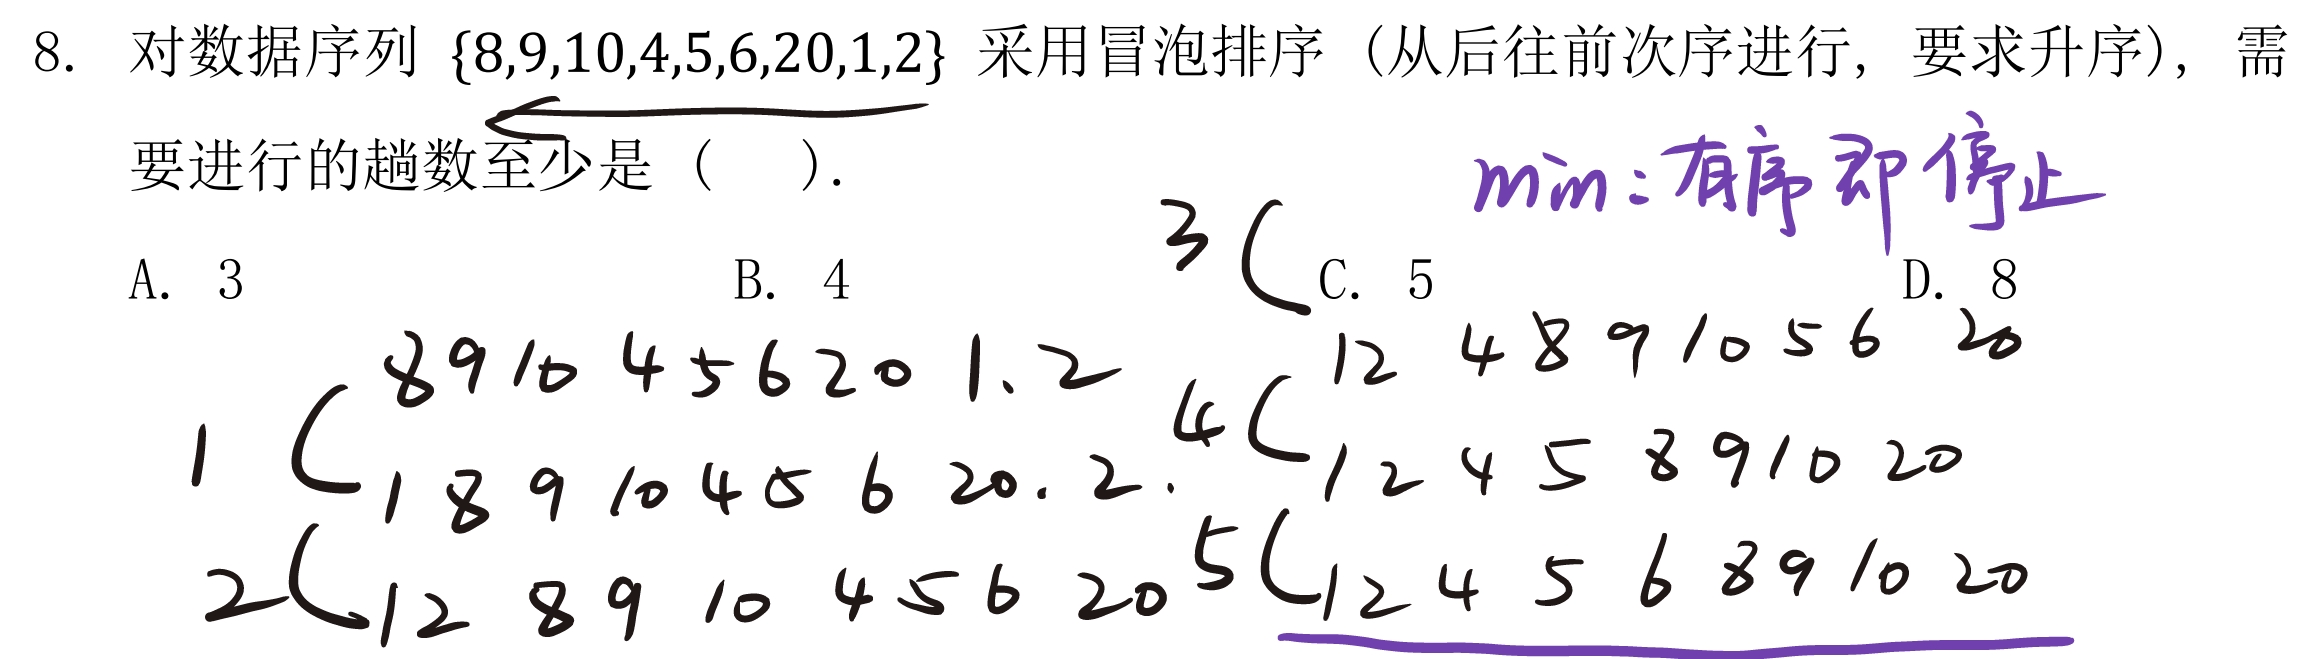 8. 对数据序列 {8,9,10,4,5,6,20,1,2} 采用冒泡排序（从后往前次序进行，要求升序），需
要进行的趟数至少是（ ）.
min：有序即停止
A. 3 B. 4 C. 5 D. 8
8 9 10 4 5 6 20 1、2
1 ( 1 8 9 10 4 5 6 20. 2.
2 ( 1 2 8 9 10 4 5 6 20
3 ( 1 2 4 8 9 10 5 6 20
4 ( 1 2 4 5 8 9 10 20
5 ( 1 2 4 5 6 8 9 10 20